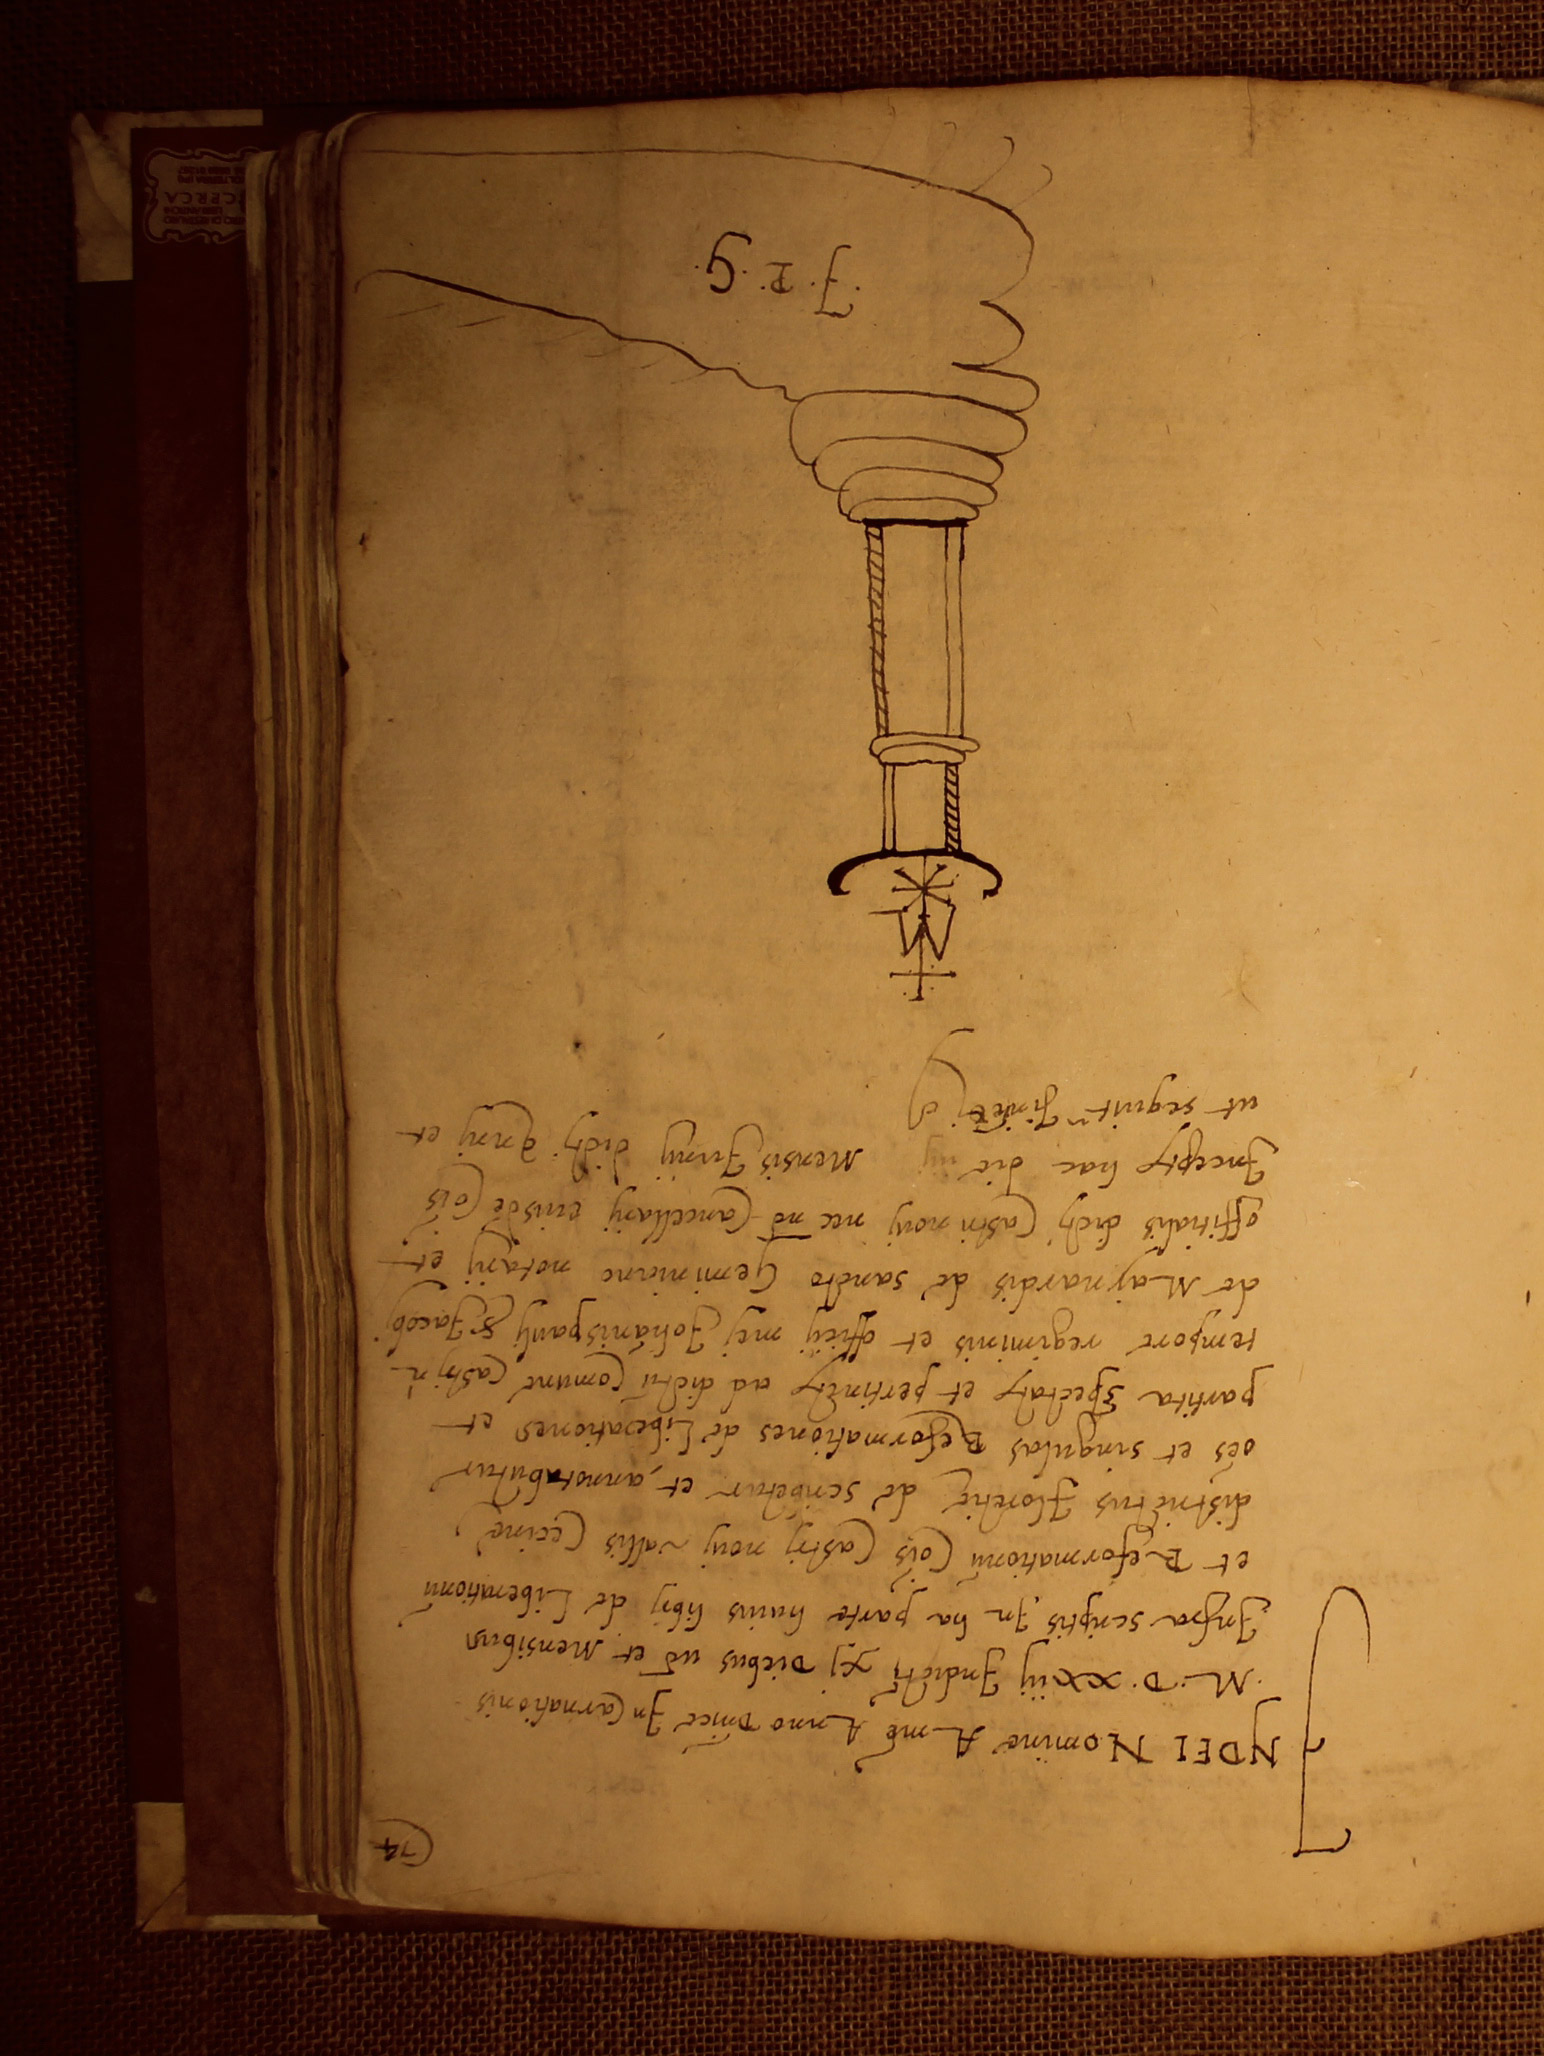 74
INDEI Nomine Amē Anno Dnicē In Carnationis
.M.D.xxiij Indictē xj Diebus uō et Mensibus
Infra scriptis In ha parte huius librj de Liberationū
et Reformationū Cōis Castrj novj vallis Cecine
districtus Florētie de scribētur et annotabūtur
oēs et singulas Reformationes de Liberationes et
partita spectātē et pertinētē ad dictū Comune Castrj n̄
tempore regiminis et officij mej Johānispaulj S. Jacobj
de Majnardis de sancto Geminiano notarij et
offitialis dictj Castri novj nec nō Cancellarij eiusdē Cōis
Inceptē hac die iij Mensis Junij dictj Annj et
ut sequit~
.J.P.G.